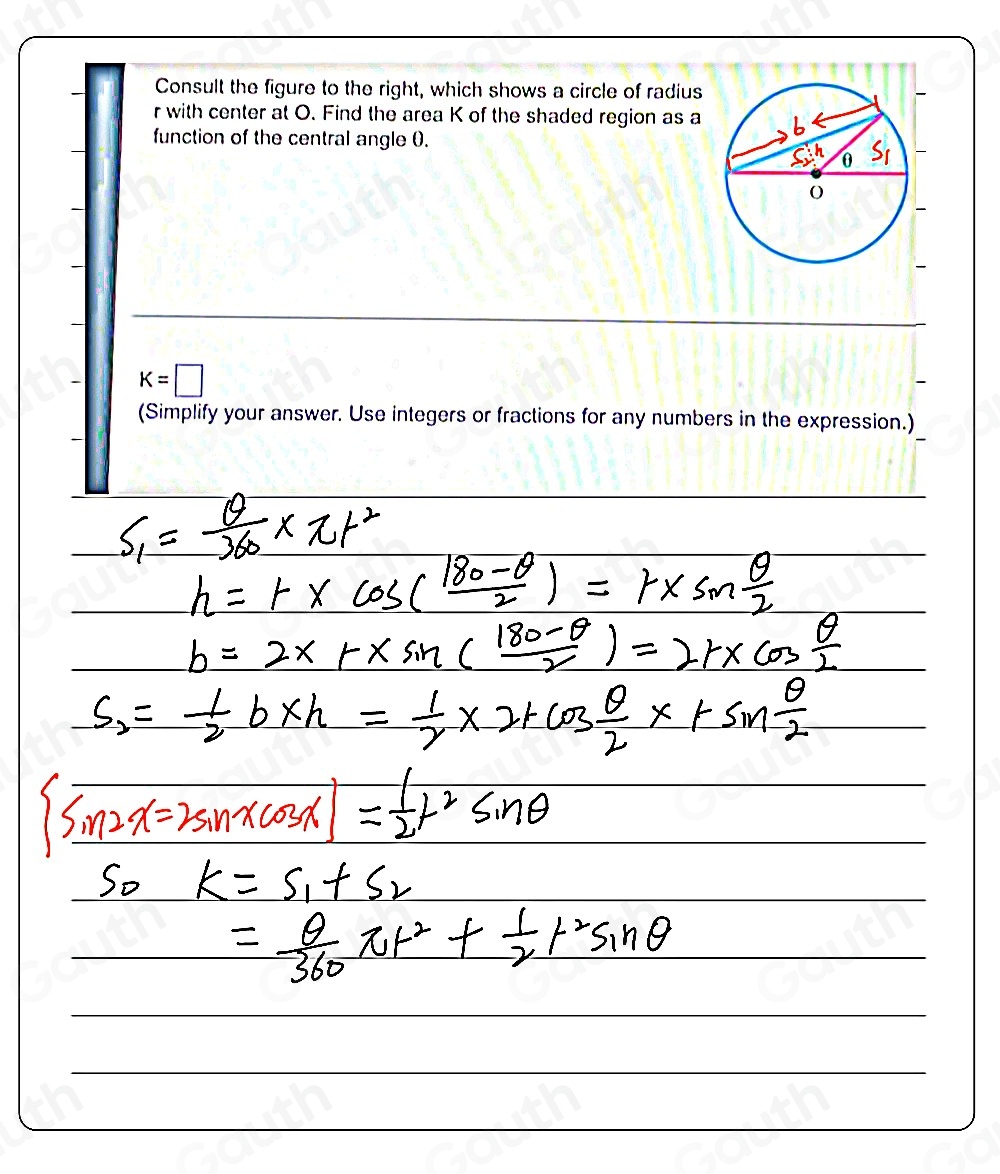 Consult the figure to the right, which shows a circle of radius
r with center at O. Find the area K of the shaded region as a
function of the central angle θ.
b
S₂ h θ S₁
O
K =
(Simplify your answer. Use integers or fractions for any numbers in the expression.)
S₁ = θ/360 × πr²
h = r × cos( (180-θ)/2 ) = r × sin θ/2
b = 2 × r × sin( (180-θ)/2 ) = 2r × cos θ/2
S₂ = 1/2 b × h = 1/2 × 2r cos θ/2 × r sin θ/2
{sin2x=2sinxcosx} = 1/2 r² sinθ
So K = S₁ + S₂
= θ/360 πr² + 1/2 r² sinθ
Gauth